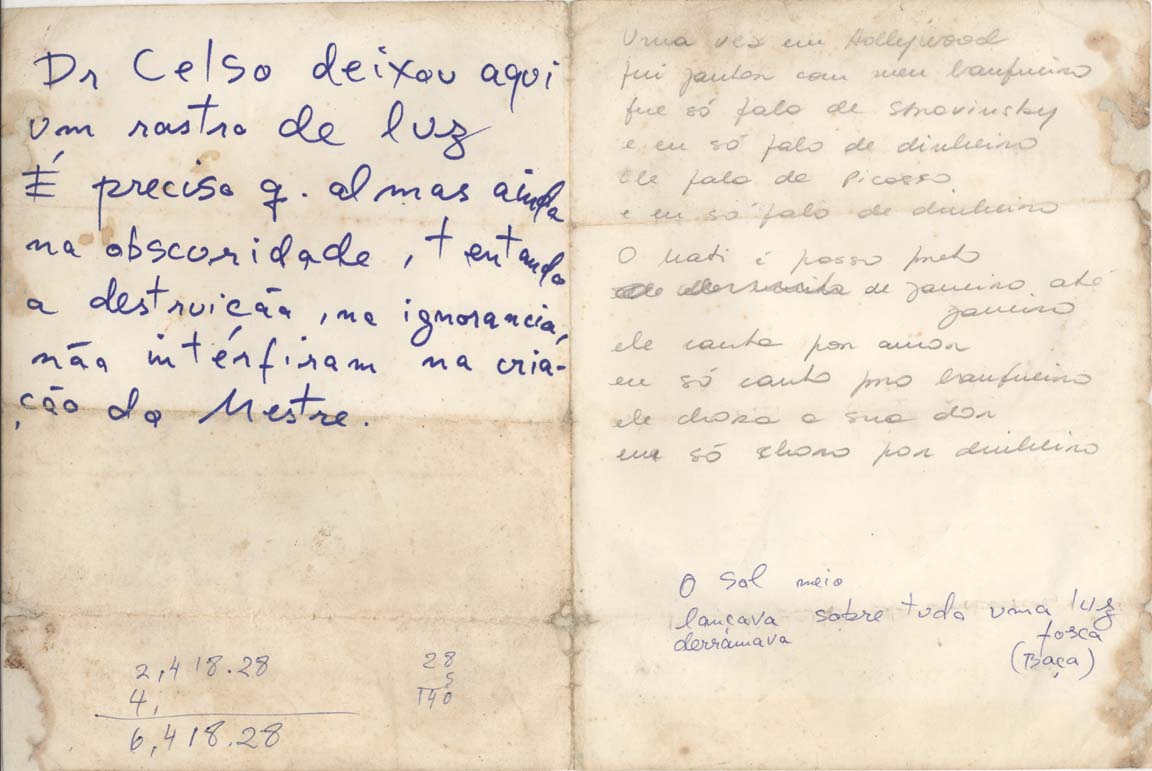 Dr Celso deixou aqui
um rastro de luz
É preciso q. almas ainda
na obscuridade, tentando
a destruição, na ignorancia,
não intérfiram na cria-
ção do Mestre.
2,418.28
4,
6,418.28
28
5
140
Uma vez em Hollywood
fui jantar com meu banqueiro
que só fala de Stravinsky
e eu só falo de dinheiro
ele fala de Picasso
e eu só falo de dinheiro
O é passo preto
de janeiro até
janeiro
ele canta por amor
eu só canto pro banqueiro
ele chora a sua dor
eu só choro por dinheiro
O Sol meio
lançava sobre tudo uma luz
derramava fosca
(Baça)